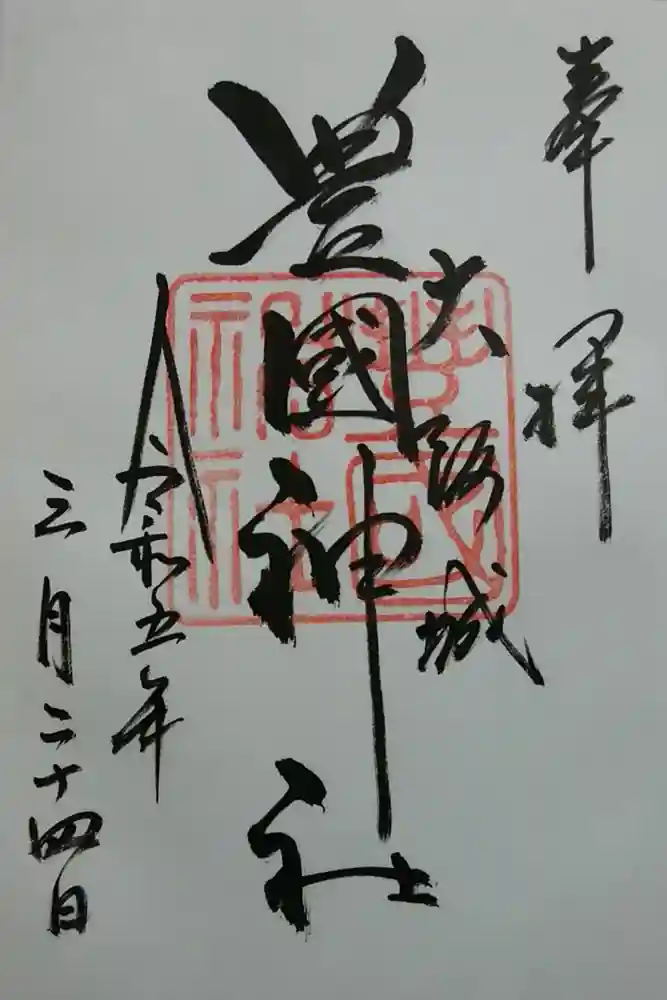 奉拝
大阪城
豊國神社
令和五年
三月二十四日
豊國
神社